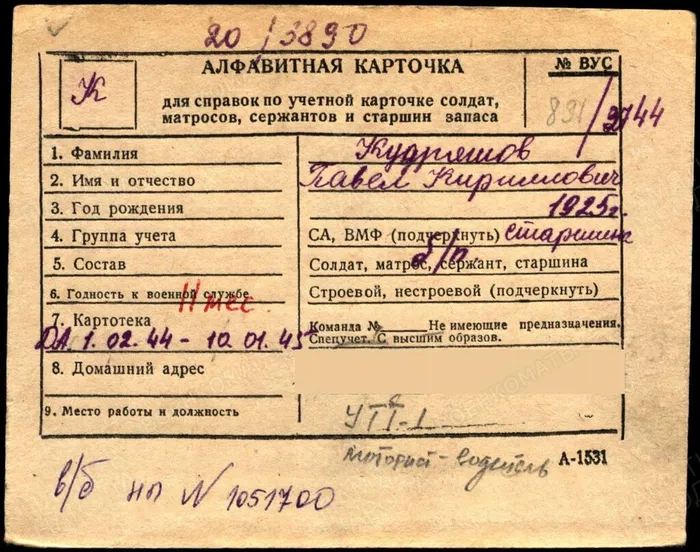 20/3890
К
АЛФАВИТНАЯ КАРТОЧКА
для справок по учетной карточке солдат,
матросов, сержантов и старшин запаса
№ ВУС
891/
3744
1. Фамилия Кудряшов
2. Имя и отчество Павел Кириллович
3. Год рождения 1925г.
4. Группа учета СА, ВМФ (подчеркнуть) старшина
5. Состав Солдат, матрос, сержант, старшина
б/п
6. Годность к военной службе Строевой, нестроевой (подчеркнуть)
11 мес.
7. Картотека Команда № Не имеющие предназначения.
Спецучет. С высшим образов.
ДА. 1.02.44 - 10.01.45
8. Домашний адрес
9. Место работы и должность
моторист-водитель А-1531
в/б НЫ № 1051700